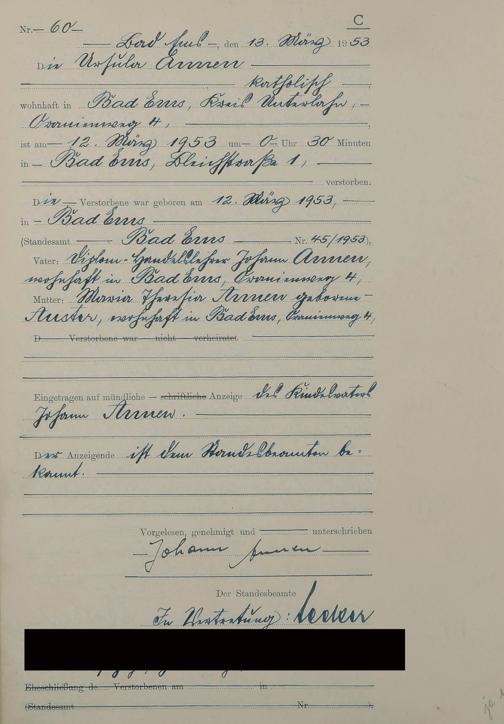 C
Nr. 60
Bad Ems, den 13. März 1953
Die Ursula Annen
katholisch
wohnhaft in Bad Ems, Kreis Unterlahn,
Oranienweg 4,
ist am 12. März 1953 um 0 Uhr 30 Minuten
in Bad Ems, Bleichstraße 1,
verstorben.
Die Verstorbene war geboren am 12. März 1953,
in Bad Ems
(Standesamt Bad Ems Nr. 45/1953),
Vater: Diplom-Handelslehrer Johann Annen,
wohnhaft in Bad Ems, Oranienweg 4,
Mutter: Maria Theresia Annen geborene
Auster, wohnhaft in Bad Ems, Oranienweg 4,
D Verstorbene war nicht verheiratet
Eingetragen auf mündliche – schriftliche Anzeige des Kindesvaters
Johann Annen.
Der Anzeigende ist dem Standesbeamten be-
kannt.
Vorgelesen, genehmigt und unterschrieben
Johann Annen
Der Standesbeamte
In Vertretung:
Eheschließung de Verstorbenen am in
(Standesamt Nr. ),